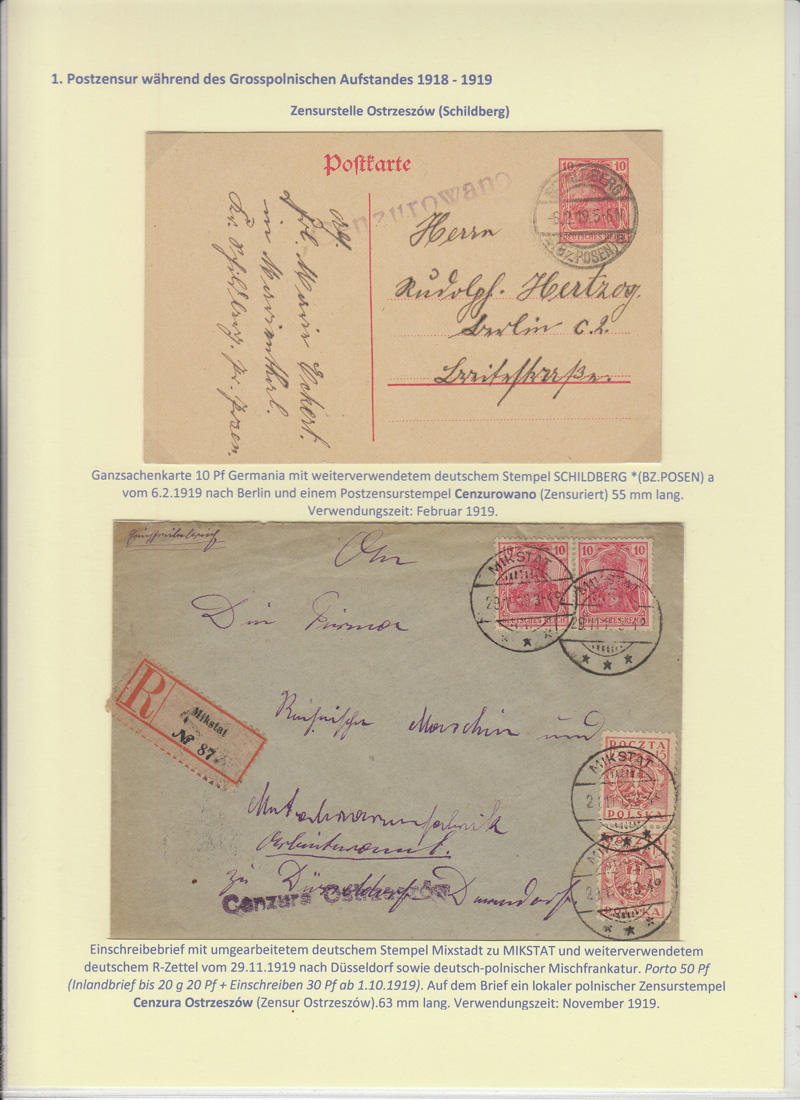 1. Postzensur während des Grosspolnischen Aufstandes 1918 - 1919
Zensurstelle Ostrzeszów (Schildberg)
Postkarte
10 10
DEUTSCHES REICH
SCHILDBERG
-6.2.19.5-6N
*(BZ.POSEN) a
Cenzurowano
Herrn
Rudolph Hertzog.
Berlin C. 2.
Breitestraße.
Abs.
Frl. Marie Eckert.
in Marienthal.
Kr. Schildberg, Pr. Posen.
Ganzsachenkarte 10 Pf Germania mit weiterverwendetem deutschem Stempel SCHILDBERG *(BZ.POSEN) a
vom 6.2.1919 nach Berlin und einem Postzensurstempel Cenzurowano (Zensuriert) 55 mm lang.
Verwendungszeit: Februar 1919.
Einschreibebrief
10 10 10 10
DEUTSCHES REICH DEUTSCHES REICH
MIKSTAT
MIKSTAT
An
Die Firma
R
Mikstat
№ 87
Maschin und
zu Düsseldorf
Cenzura Ostrzeszów
POCZTA
15
POLSKA
MIKSTAT
MIKSTAT
Einschreibebrief mit umgearbeitetem deutschem Stempel Mixstadt zu MIKSTAT und weiterverwendetem
deutschem R-Zettel vom 29.11.1919 nach Düsseldorf sowie deutsch-polnischer Mischfrankatur. Porto 50 Pf
(Inlandbrief bis 20 g 20 Pf + Einschreiben 30 Pf ab 1.10.1919). Auf dem Brief ein lokaler polnischer Zensurstempel
Cenzura Ostrzeszów (Zensur Ostrzeszów).63 mm lang. Verwendungszeit: November 1919.